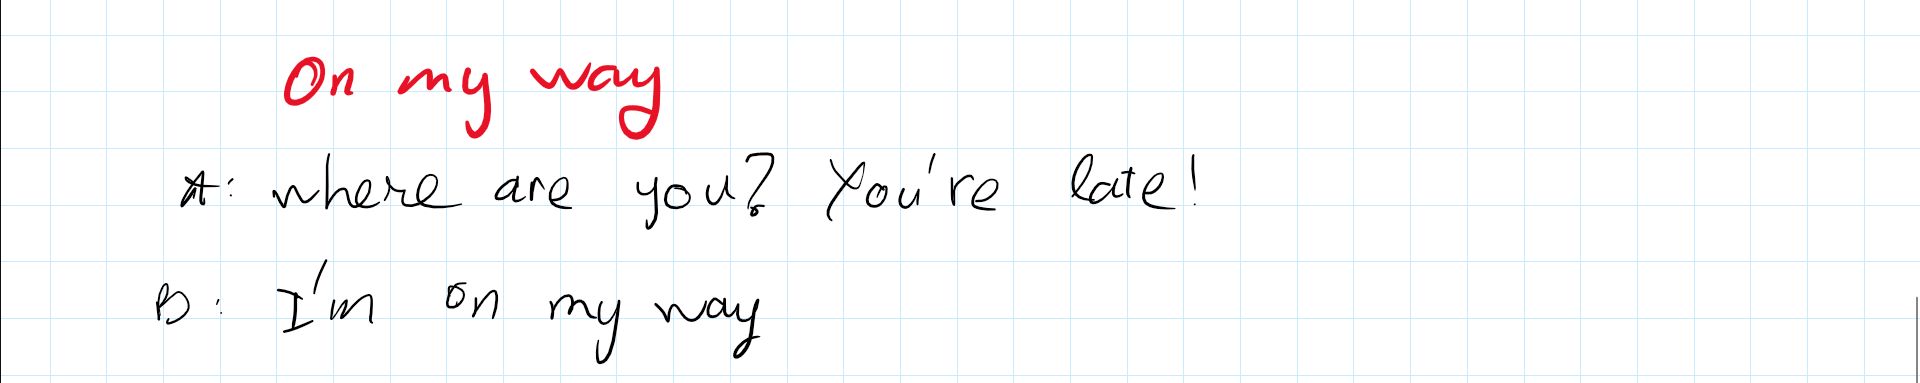 On my way
A: where are you? You're late!
B: I'm on my way